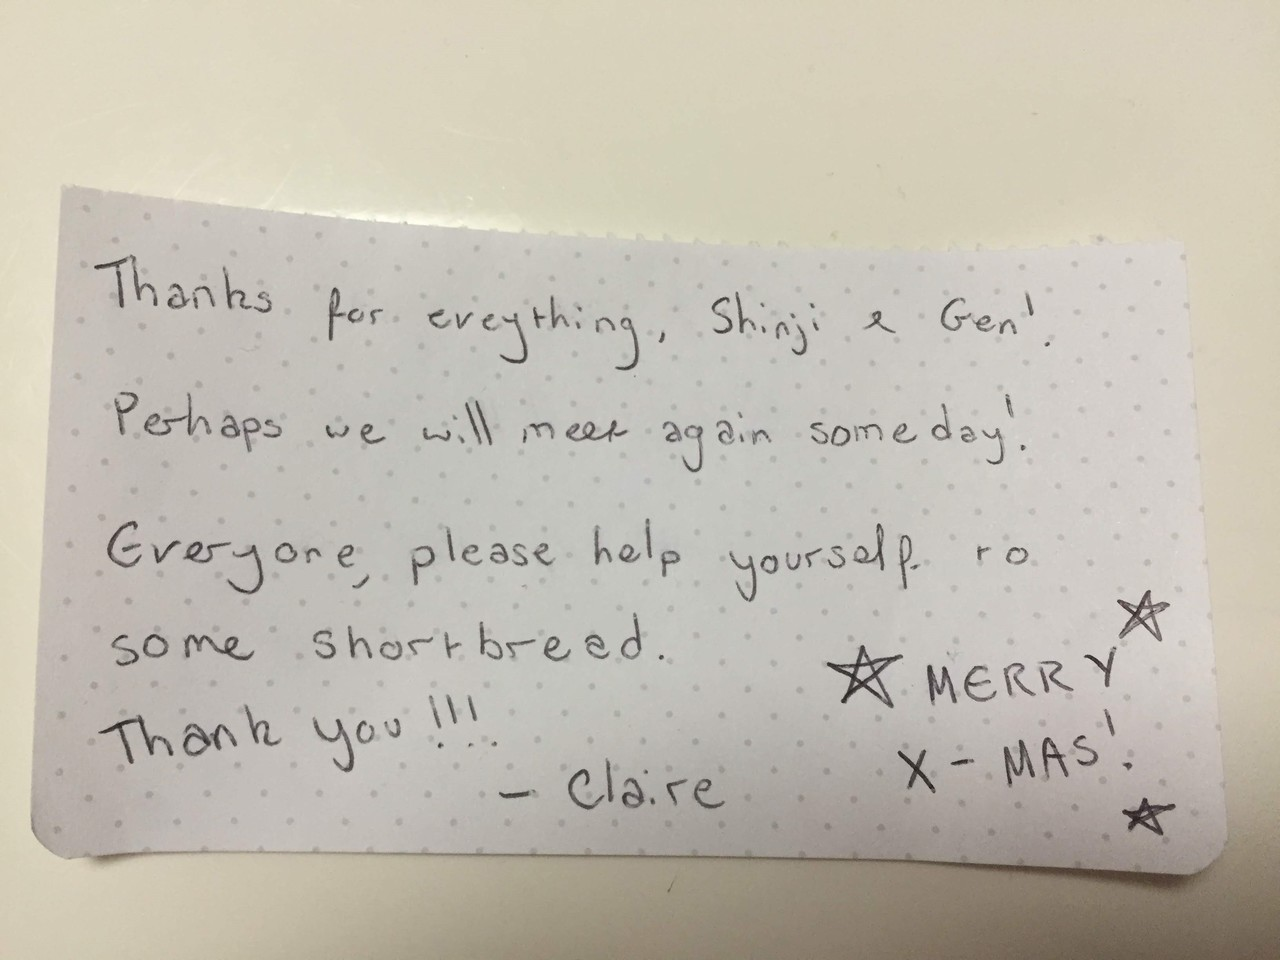 Thanks for eveything, Shinji & Gen!
Perhaps we will meet again someday!
Everyone, please help yourself to
some shortbread.
Thank you!!!
- Claire
MERRY
X-MAS!